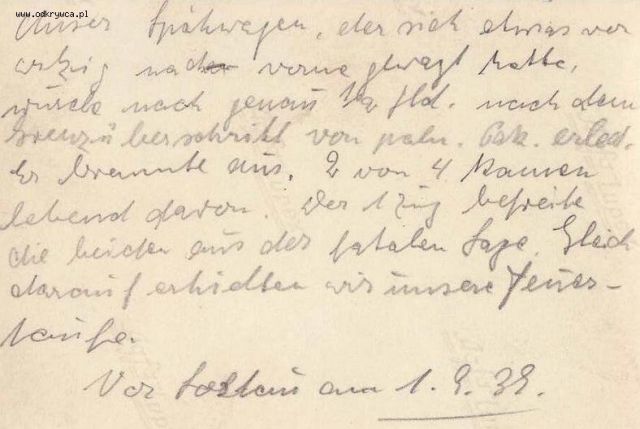 www.odkrywca.pl
Unser Spähwagen, der sich etwas vor
witzig nach vorne gewagt hatte,
wurde nach genau 1/2 Std. nach dem
Grenzüberschritt von poln. Pak. erled.
Er brannte aus. 2 von 4 kamen
lebend davon. Der 1 Zug befreite
die beiden aus der fatalen Lage. Gleich
darauf erhielten wir unsere Feuer-
taufe.
Vor am 1. 9. 39.